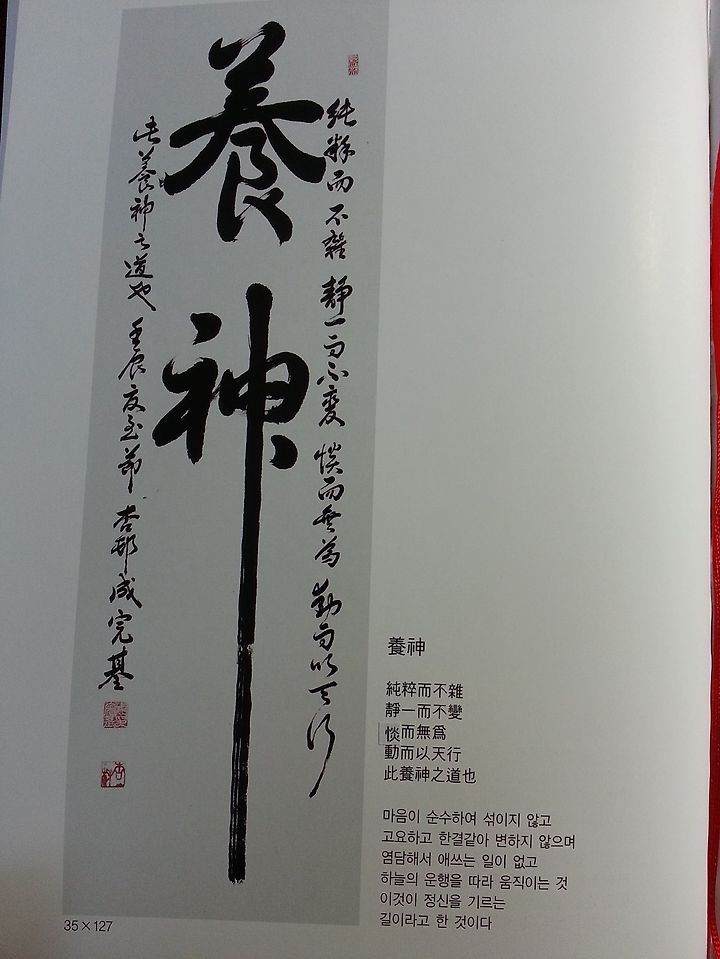 養神
純粹而不雜 靜一而不變 惔而無為 動而以天行
此養神之道也 壬辰夏至節 杏邨成完基
養神
純粹而不雜
靜一而不變
惔而無爲
動而以天行
此養神之道也
마음이 순수하여 섞이지 않고
고요하고 한결같아 변하지 않으며
염담해서 애쓰는 일이 없고
하늘의 운행을 따라 움직이는 것
이것이 정신을 기르는
길이라고 한 것이다
35×127